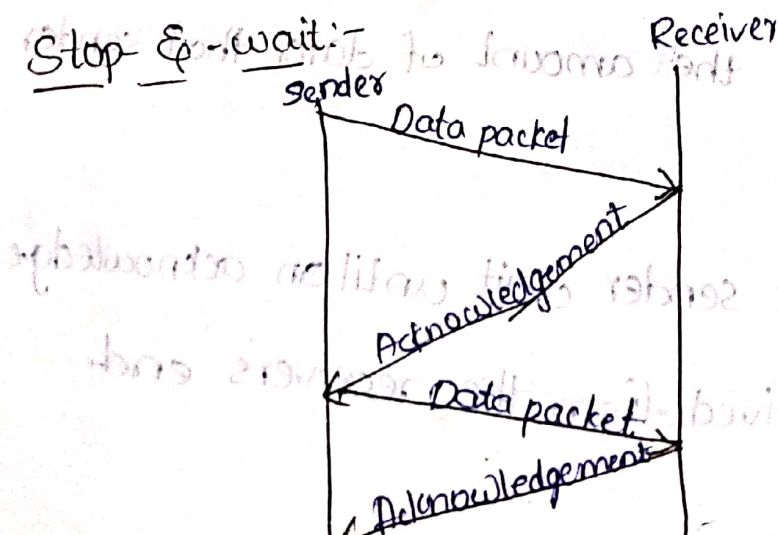 Stop & wait:-
Receiver
Sender
Data packet
Acknowledgement
Data packet
Acknowledgement